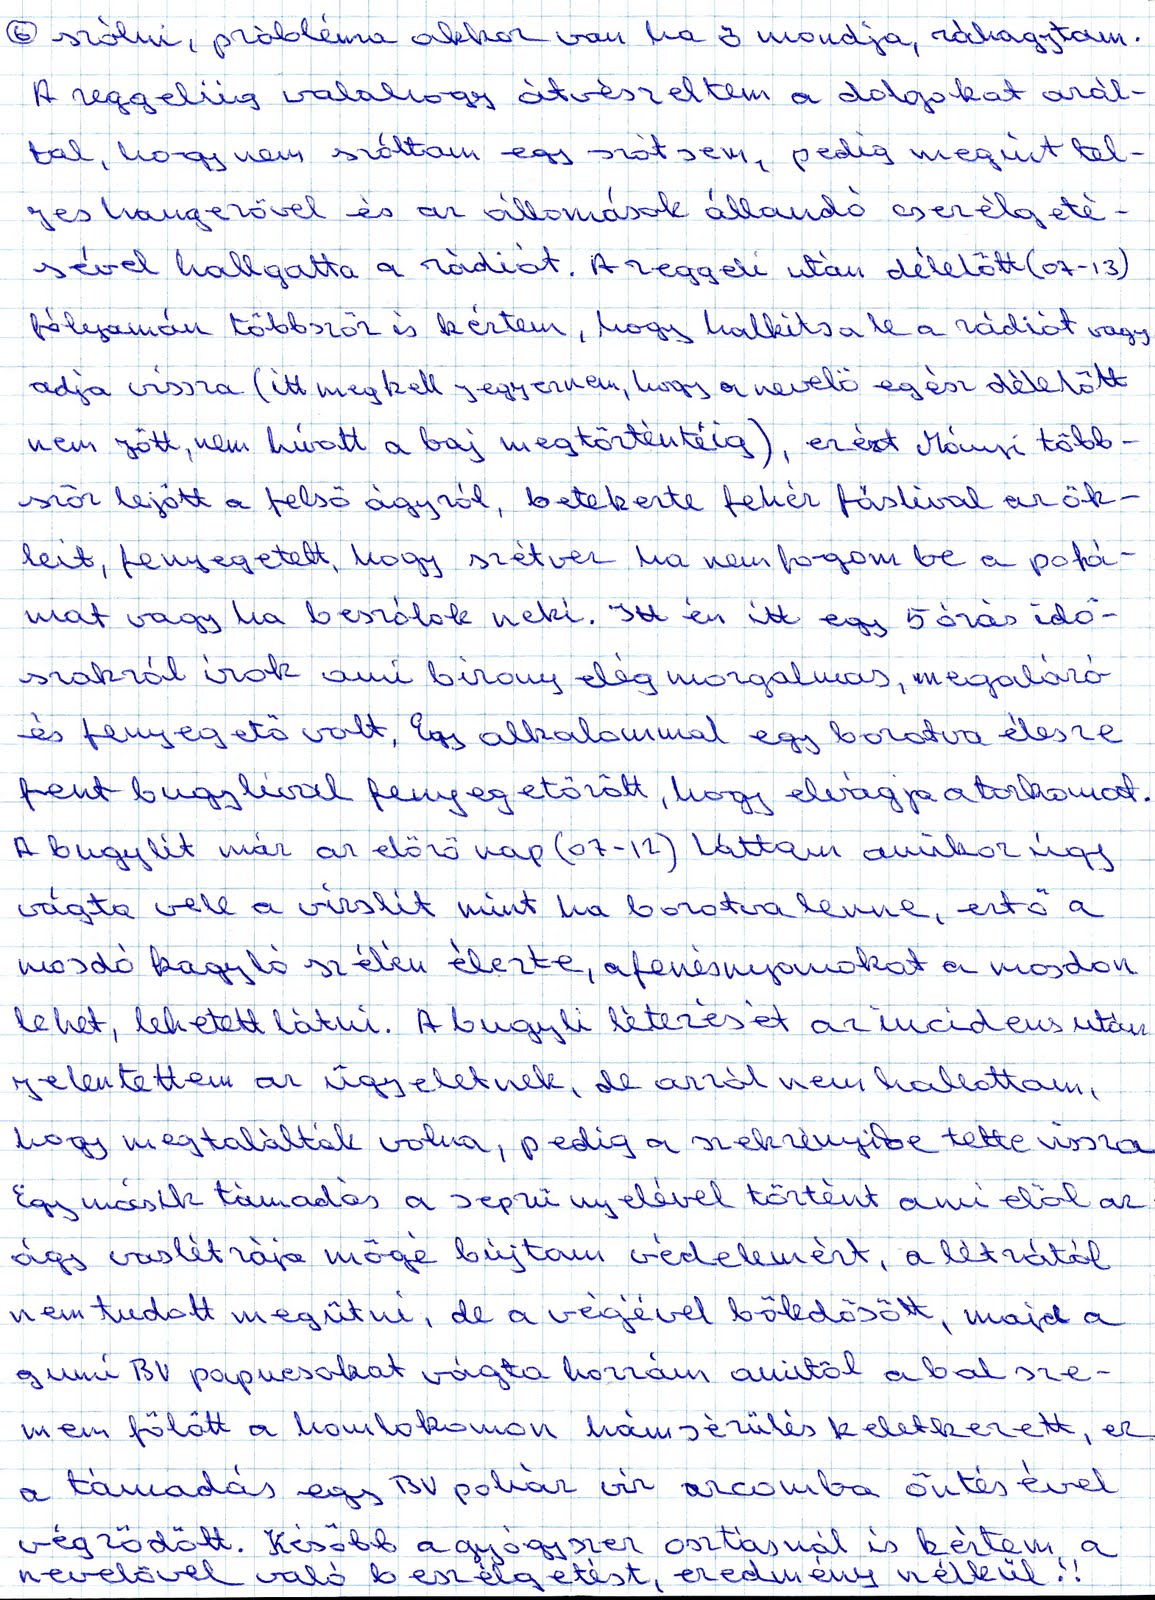 ⑥ szólni, probléma akkor van ha ő mondja, ráhagytam.
A reggeliig valahogy átvészeltem a dolgokat azál-
tal, hogy nem szóltam egy szót sem, pedig megint tel-
jes hangerővel és az állomások állandó cserélgeté-
sével hallgatta a rádiót. A reggeli után délelőtt (07-13)
folyamán többször is kértem, hogy halkitsa le a rádiót vagy
adja vissza (itt megkell jegyeznem, hogy a nevelő egész délelőtt
nem jött, nem hivott a baj megtörténtéig), ezért Mányi több-
ször lejött a felső ágyról, betekerte fehér fáslival az ök-
leit, fenyegetett, hogy szétver ha nem fogom be a pofá-
mat vagy ha beszólok neki. Itt én itt egy 5 órás idő-
szakról irok ami bizony elég mozgalmas, megalázó
és fenyegető volt, Egy alkalommal egy borotva élesre
fent bugylival fenyegetőzött, hogy elvágja a torkomat.
A bugylit már az előző nap (07-12) láttam amikor úgy
vágta vele a virslit mint ha borotva lenne, ertő a
mosdó kagyló szélén élezte, a fenésnyomokat a mosdon
lehet, lehetett látni. A bugyli létezését az incidens után
jelentettem az ügyeletnek, de arról nem hallottam,
hogy megtalálták volna, pedig a szekrényibe tette vissza
Egy másik támadás a seprü nyelével történt ami elől az
ágy vaslétrája mögé bújtam védelemért, a létrától
nem tudott megütni, de a végével bökdösött, majd a
gumi BV papucsokat vágta hozzám amitől a bal sze-
mem fölött a homlokomon hámsérülés keletkezett, ez
a támadás egy BV pohár viz arcomba öntésével
végződött. Később a gyógyszer osztásnál is kértem a
nevelővel való beszélgetést, eredmény nélkül!!